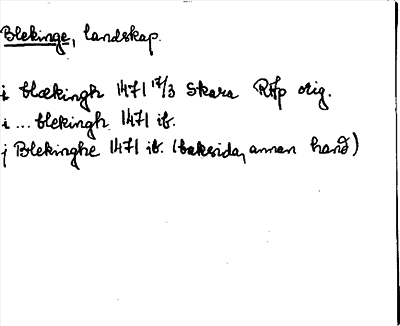 Blekinge, landskap.
i blækingh 1471 17/3 Skara RAp orig.
i ... blekingh 1471 ib.
j Blekinghe 1471 ib. (baksida, annan hand)